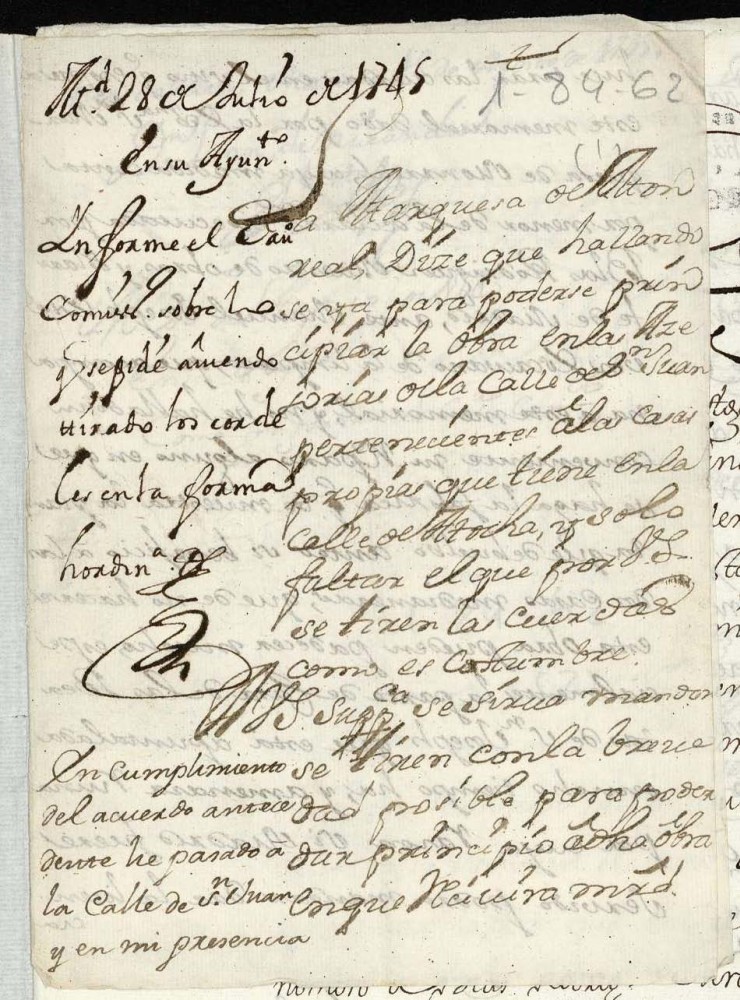 1-89-62
(1)
Md. 28 de Julio de 1745
En su Ayunto.
Informe el Cavo
Comiso. sobre lo
q se pide aviendo
ttirado los corde
les en la forma
hordina.
La Marquesa de Mon
real, Dize que hallando
se ya para poderse prin
cipiar la obra en las Aze
sorias de la Calle de Sn Juan
pertenecientes a las Casas
propias que tiene en la
Calle de Atocha, y solo
faltar el que por VS.
se tiren las cuerdas
como es Costumbre.
A VS. Suppca se sirva mandar
se tiren con la breve
dad posible para poder
dar principio a dha obra
en que Recivira mrd.
En cumplimiento
del acuerdo antece
dente he pasado a
la Calle de Sn. Juan
y en mi presencia